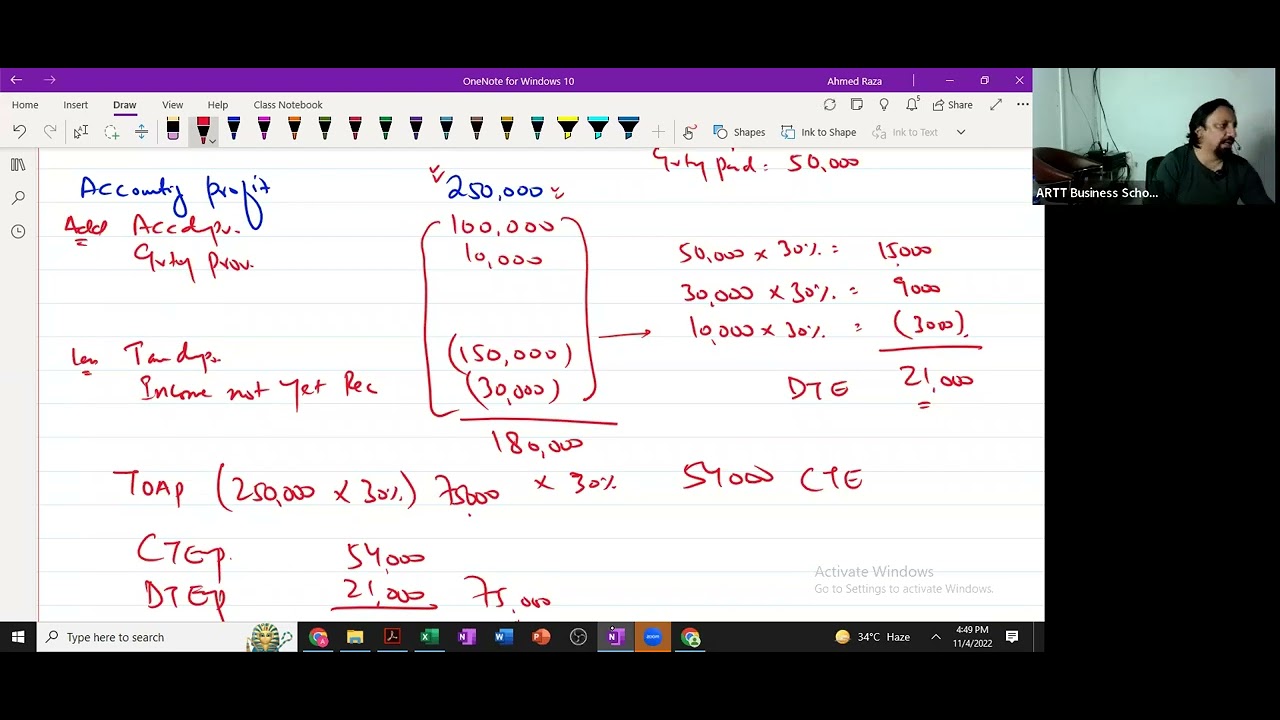 OneNote for Windows 10
Ahmed Raza
Home Insert Draw View Help Class Notebook
Share
Shapes Ink to Shape Ink to Text
ARTT Business Scho...
Grty paid : 50,000
Accountg profit 250,000
Add Acc depr. 100,000
Grty prov. 10,000
50,000 x 30% = 15000
30,000 x 30% = 9000
10,000 x 30% = (3000)
Less Tax dep. (150,000)
Income not yet Rec (30,000)
DTE 21,000
180,000
TOAP (250,000 x 30%) 75000 x 30% 54000 CTE
CTExp. 54,000
DTExp 21,000 75,000
Activate Windows
Go to Settings to activate Windows.
Type here to search
34°C Haze
4:49 PM
11/4/2022